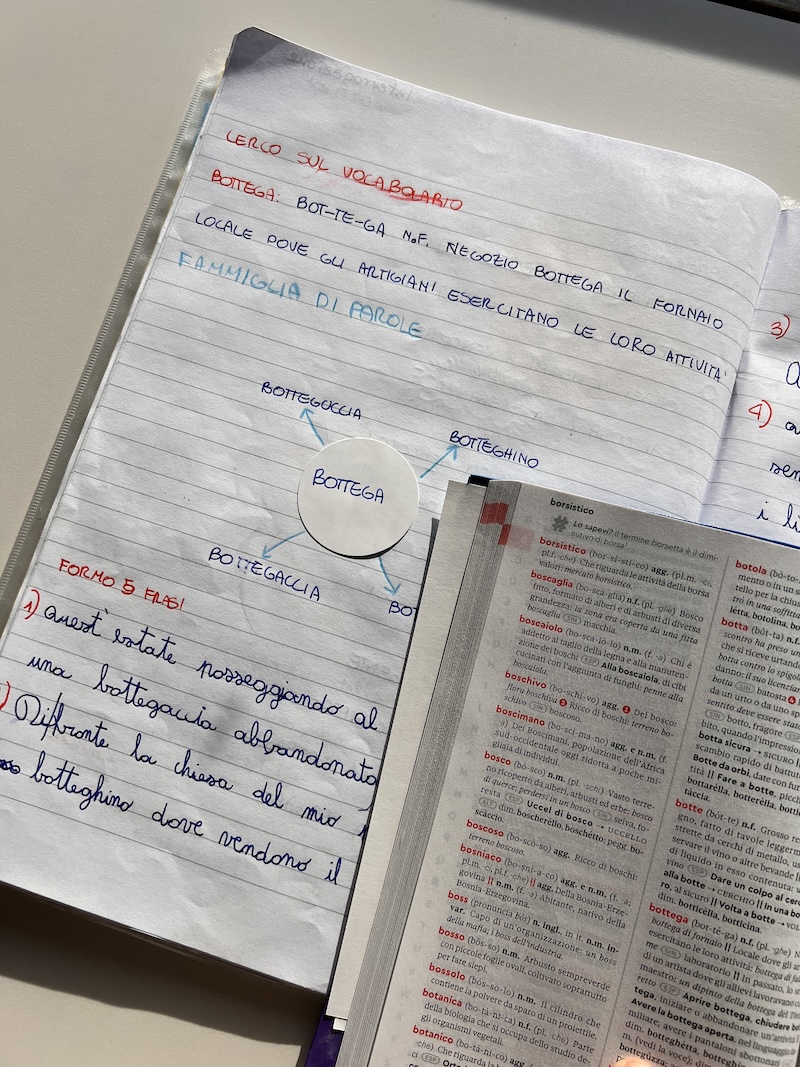 CERCO SUL VOCABOLARIO
BOTTEGA: BOT-TE-GA N.F. NEGOZIO BOTTEGA IL FORNAIO
LOCALE DOVE GLI ARTIGIANI ESERCITANO LE LORO ATTIVITA'
FAMMIGLIA DI PAROLE
BOTTEGUCCIA
BOTTEGHINO
BOTTEGA
BOTTEGACCIA
BOT
FORMO 5 FRASI
1) Quest'estate passeggiando al
una bottegaccia abbandonata
Diffronte la chiesa del mio
botteghino dove vendono il
3)
4)
i li
borsistico
# Lo sapevi? Il termine borsetta è il dimi-
nutivo di borsa
borsistico (bor-sì-sti-co) agg. (pl.m. -ci,
pl.f. -che) Che riguarda le attività della borsa
valori: mercato borsistico.
boscaglia (bo-scà-glia) n.f. (pl. -glie) Bosco
fitto, formato di alberi e di arbusti di diversa
grandezza: la zona era coperta da una fitta
boscaglia SIN macchia.
boscaiolo (bo-sca-iò-lo) n.m. (f. -a) Chi è
addetto al taglio della legna e alla manuten-
zione dei boschi ESP Alla boscaiola, di cibi
cucinati con l'aggiunta di funghi: penne alla
boscaiola.
boschivo (bo-schì-vo) agg. 1 Del bosco:
flora boschiva 2 Ricco di boschi: terreno bo-
schivo SIN boscoso.
boscimano (bo-scì-ma-no) agg. e n.m. (f.
-a) Dei Boscimani, popolazione dell'Africa
sud-occidentale oggi ridotta a poche mi-
gliaia di individui.
bosco (bò-sco) n.m. (pl. -schi) Vasto terre-
no ricoperto da alberi, arbusti ed erbe: bosco
di querce; perdersi in un bosco SIN selva, fo-
resta ESP Uccel di bosco → UCCELLO
ALT dim. boscherello, boschetto; pegg. bo-
scaccio.
boscoso (bo-scó-so) agg. Ricco di boschi:
terreno boscoso.
bosniaco (bo-snì-a-co) agg. e n.m. (f. -a;
pl.m. -ci, pl.f. -che) || agg. Della Bosnia-Erze-
govina || n.m. (f. -a) Abitante, nativo della
Bosnia-Erzegovina.
boss (pronuncia bòs) n. ingl., in it. n.m. in-
var. Capo di un'organizzazione: un boss
della mafia; i boss dell'industria.
bosso (bòs-so) n.m. Arbusto sempreverde
con piccole foglie ovali, coltivato soprattutto
per fare siepi.
bossolo (bòs-so-lo) n.m. Il cilindro che
contiene la polvere da sparo di un proiettile.
botanica (bo-tà-ni-ca) n.f. (pl. -che) Parte
della biologia che si occupa dello studio de-
gli organismi vegetali.
botanico (bo-tà-ni-co) agg.
-che) Che riguarda la
ESP Orto
botola (bò-to-
mento o in un s
tello per la chius
mi in una soffitta
botta (bòt-ta) n.f.
scontro ha preso un
che si riceve urtando
botta contro lo spigolo
danno: il suo licenzia
da un urto o da uno sp
botta SIN batosta 4
sentito deve essere stan
SIN botto, fragore ESP
bito, quando l'impression
botta sicura → SICURO ||
scambio rapido di battut
Botte da orbi, date con fur
tità || Fare a botte, picch
bottarèlla, botterèlla, bottic
tàccia.
botte (bót-te) n.f. Grosso re
gno, fatto di tavole leggerm
strette da cerchi di metallo, u
servare il vino o altre bevande ||
di liquido in esso contenuta: u
vino ESP Dare un colpo al cerc
alla botte → CERCHIO || In una bo
ro, al sicuro || Volta a botte → VOL
dim. botticèlla, botticina.
bottega (bot-té-ga) n.f. (pl. -ghe) N
bottega di fornaio || Locale dove gli ar
me SIN laboratorio || In passato, lo s
d'un artista dove gli allievi lavoravano
maestro: un dipinto della bottega del
retto ESP Aprire bottega, chiudere bo
tega, iniziare o abbandonare un'attivi
Avere la bottega aperta, nel linguaggio
miliare, avere i pantaloni sbottonati
dim. botteghétta, botteghin
m. (vedi la voce); dim
bottegùzza;